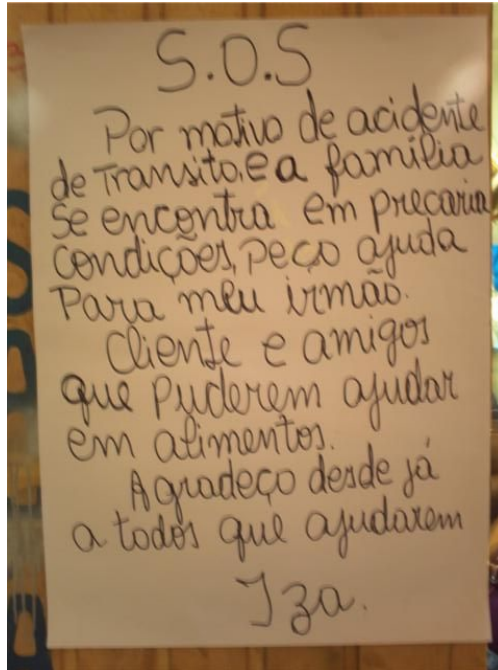 S.O.S
Por motivo de acidente
de Transito, e a família
se encontra em precaria
condições, peço ajuda
Para meu irmão.
Cliente e amigos
que puderem ajudar
em alimentos.
Agradeço desde já
a todos que ajudarem
Iza.